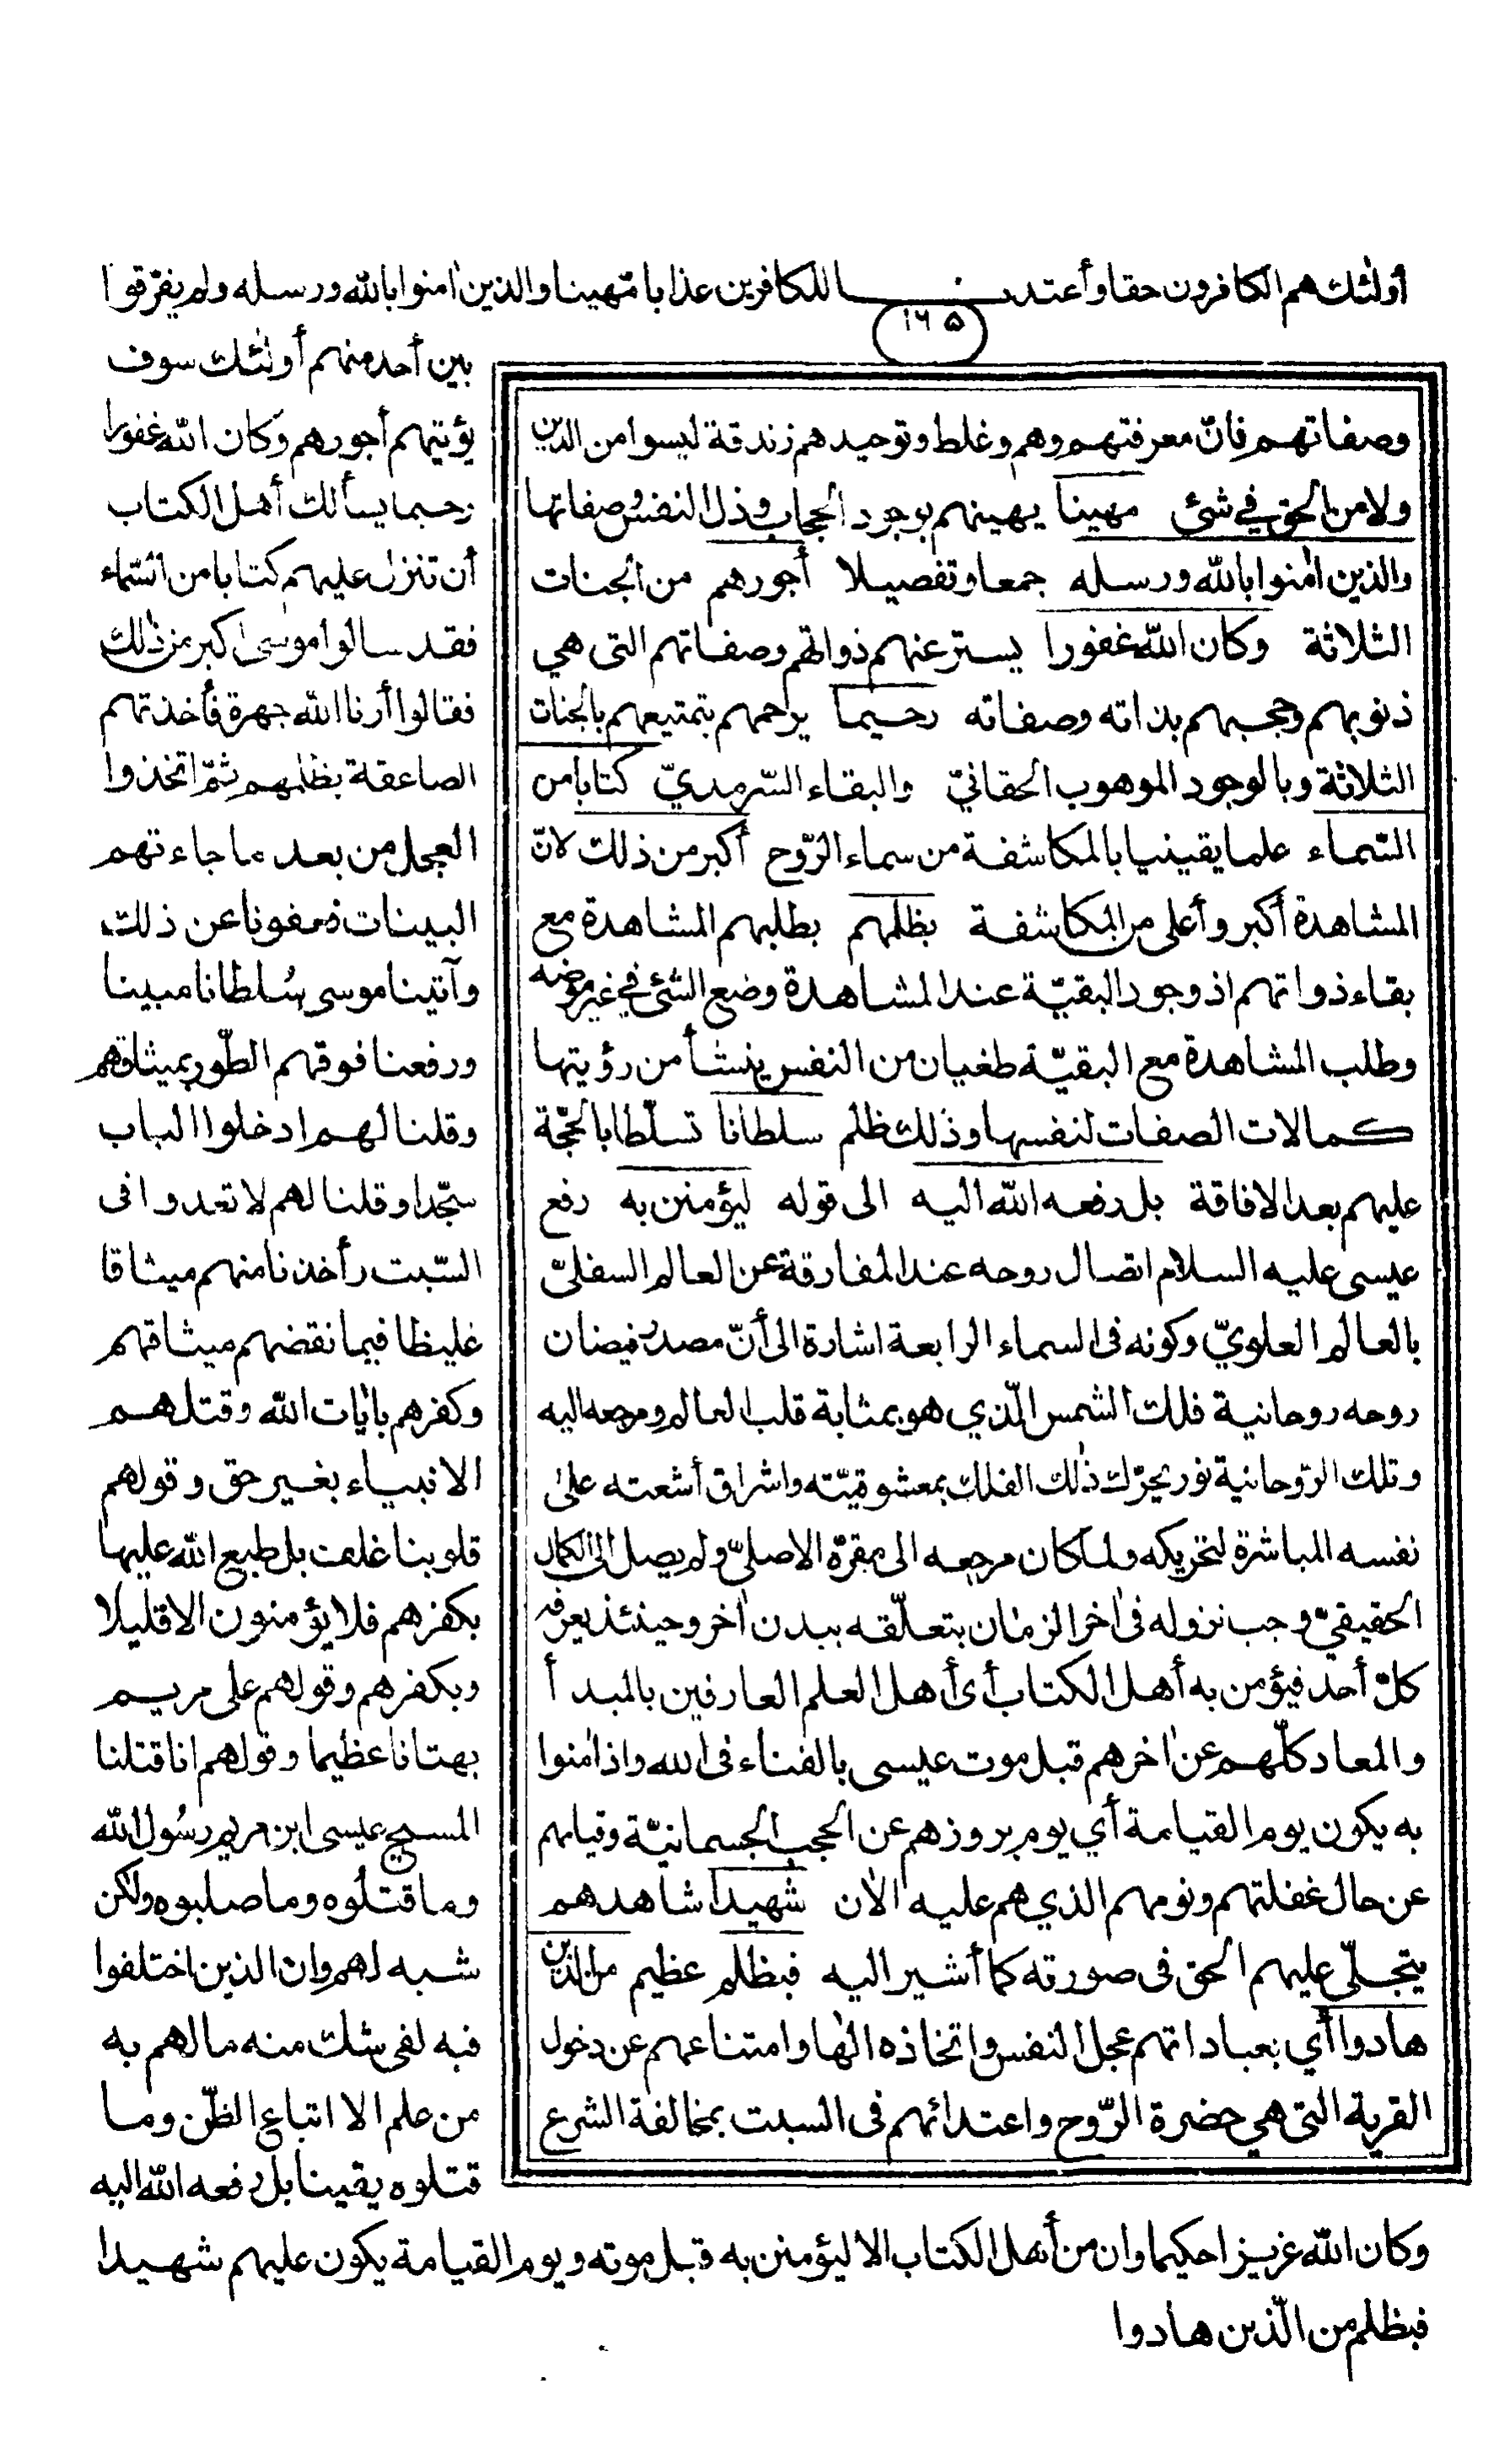 أولئك هم الكافرون حقا وأعتدنا للكافرين عذابا مهينا والذين اٰمنوا بالله ورسله ولم يفرّقوا
١٦٥
بين أحد منهم أولئك سوف
يؤتيهم أجورهم وكان الله غفورا
رحيما يسألك أهل الكتاب
أن تنزل عليهم كتابا من السّماء
فقد سالوا موسى اكبر من ذٰلك
فقالوا أرنا الله جهرة فأخذتهم
الصاعقة بظلمهم ثمّ اتخذوا
العجل من بعد ما جاءتهم
البينات فعفونا عن ذلك
وآتينا موسى سُلطانا مبينا
ورفعنا فوقهم الطّور بميثاقهم
وقلنا لهم ادخلوا الباب
سجّدا وقلنا لهم لا تعدوا فى
السّبت وأخذنا منهم ميثاقا
غليظا فبما نقضهم ميثاقهم
وكفرهم باٰيات الله وقتلهم
الانبياء بغير حق وقولهم
قلوبنا غلف بل طبع الله عليها
بكفرهم فلا يؤمنون الا قليلا
وبكفرهم وقولهم على مريم
بهتانا عظيما وقولهم انا قتلنا
المسيح عيسى ابن مريم رسُول الله
وما قتلُوه وما صلبوه ولٰكن
شبه لهم وان الذين اختلفوا
فيه لفى شك منه ما لهم به
من علم الا اتباع الظّن وما
قتلوه يقينا بل رفعه الله اليه
وكان الله عزيزا حكيما وان من أهل الكتاب الا ليؤمنن به قبل موته ويوم القيامة يكون عليهم شهيدا
فبظلم من الّذين هادوا
وصفاتهم فانّ معرفتهم وهم وغلط وتوحيدهم زندقة ليسوا من الدين
ولا من الحق في شئ مهينا يهينهم بوجود الحجاب وذل النفس وصفاتها
والذين اٰمنوا بالله ورسله جمعا وتفصيلا أجورهم من الجنات
الثلاثة وكان الله غفورا يستر عنهم ذواتهم وصفاتهم التى هي
ذنوبهم وحجبهم بذاته وصفاته رحيما يرحمهم بتمتيعهم بالجنات
الثلاثة وبالوجود الموهوب الحقانيّ والبقاء السّرمديّ كتابا من
السّماء علما يقينيا بالمكاشفة من سماء الرّوح أكبر من ذلك لانّ
المشاهدة أكبر وأعلى من المكاشفة بظلمهم بطلبهم المشاهدة مع
بقاء ذواتهم اذ وجود البقيّة عند المشاهدة وضع الشئ في غير موضعه
وطلب المشاهدة مع البقيّة طغيان من النفس ينشأ من رؤيتها
كمالات الصفات لنفسها وذلك ظلم سلطانا تسلّطا بالحجّة
عليهم بعد الافاقة بل رفعه الله اليه الى قوله ليؤمنن به رفع
عيسى عليه السلام اتصال روحه عند المفارقة عن العالم السفليّ
بالعالم العلويّ وكونه فى السماء الرابعة اشارة الى أنّ مصدر فيضان
روحه روحانية فلك الشمس الّذي هو بمثابة قلب العالم ومرجعه اليه
وتلك الرّوحانية نور يحرّك ذٰلك الفلك بمعشوقيّته واشراق أشعته على
نفسه المباشرة لتحريكه ولما كان مرجعه الى مقرّه الاصليّ ولم يصل الى الكمال
الحقيقيّ وجب نزوله فى اٰخر الزمان بتعلّقه ببدن اٰخر وحينئذ يعرفه
كلّ أحد فيؤمن به أهل الكتاب أى أهل العلم العارفين بالمبدأ
والمعاد كلّهم عن اٰخرهم قبل موت عيسى بالفناء فى الله واذ اٰمنوا
به يكون يوم القيامة أي يوم بروزهم عن الحجب الجسمانيّة وقيامهم
عن حال غفلتهم ونومهم الذي هم عليه الاٰن شهيدا شاهدهم
يتجلّى عليهم الحق فى صورته كما أشير اليه فبظلم عظيم من الذين
هادوا أي بعباداتهم عجل النفس واتخاذه الٰها وامتناعهم عن دخول
القرية التى هي حضرة الرّوح واعتدائهم فى السبت بمخالفة الشرع